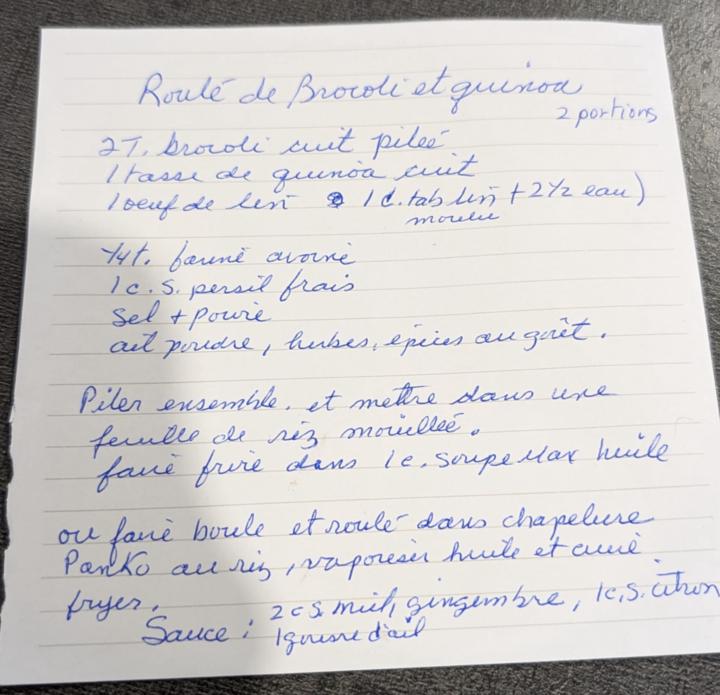 Roulé de Brocoli et quinoa
2 portions
2T. brocoli cuit pileé
1 tasse de quinoa cuit
1 oeuf de lin 1 c. tab lin + 2 1/2 eau)
moulu
1/4 t. farine avoine
1 c. s. persil frais
Sel + poivre
ail poudre, herbes, épices au goût.
Piler ensemble. et mettre dans une
feuille de riz mouilleé.
faire frire dans 1 c. soupe Max huile
ou faire boule et roulé dans chapelure
Panko au riz, vaporiser huile et cuire
fryer.
Sauce : 2 c s. miel, gingembre, 1c, s. citron
1 gousse d'ail